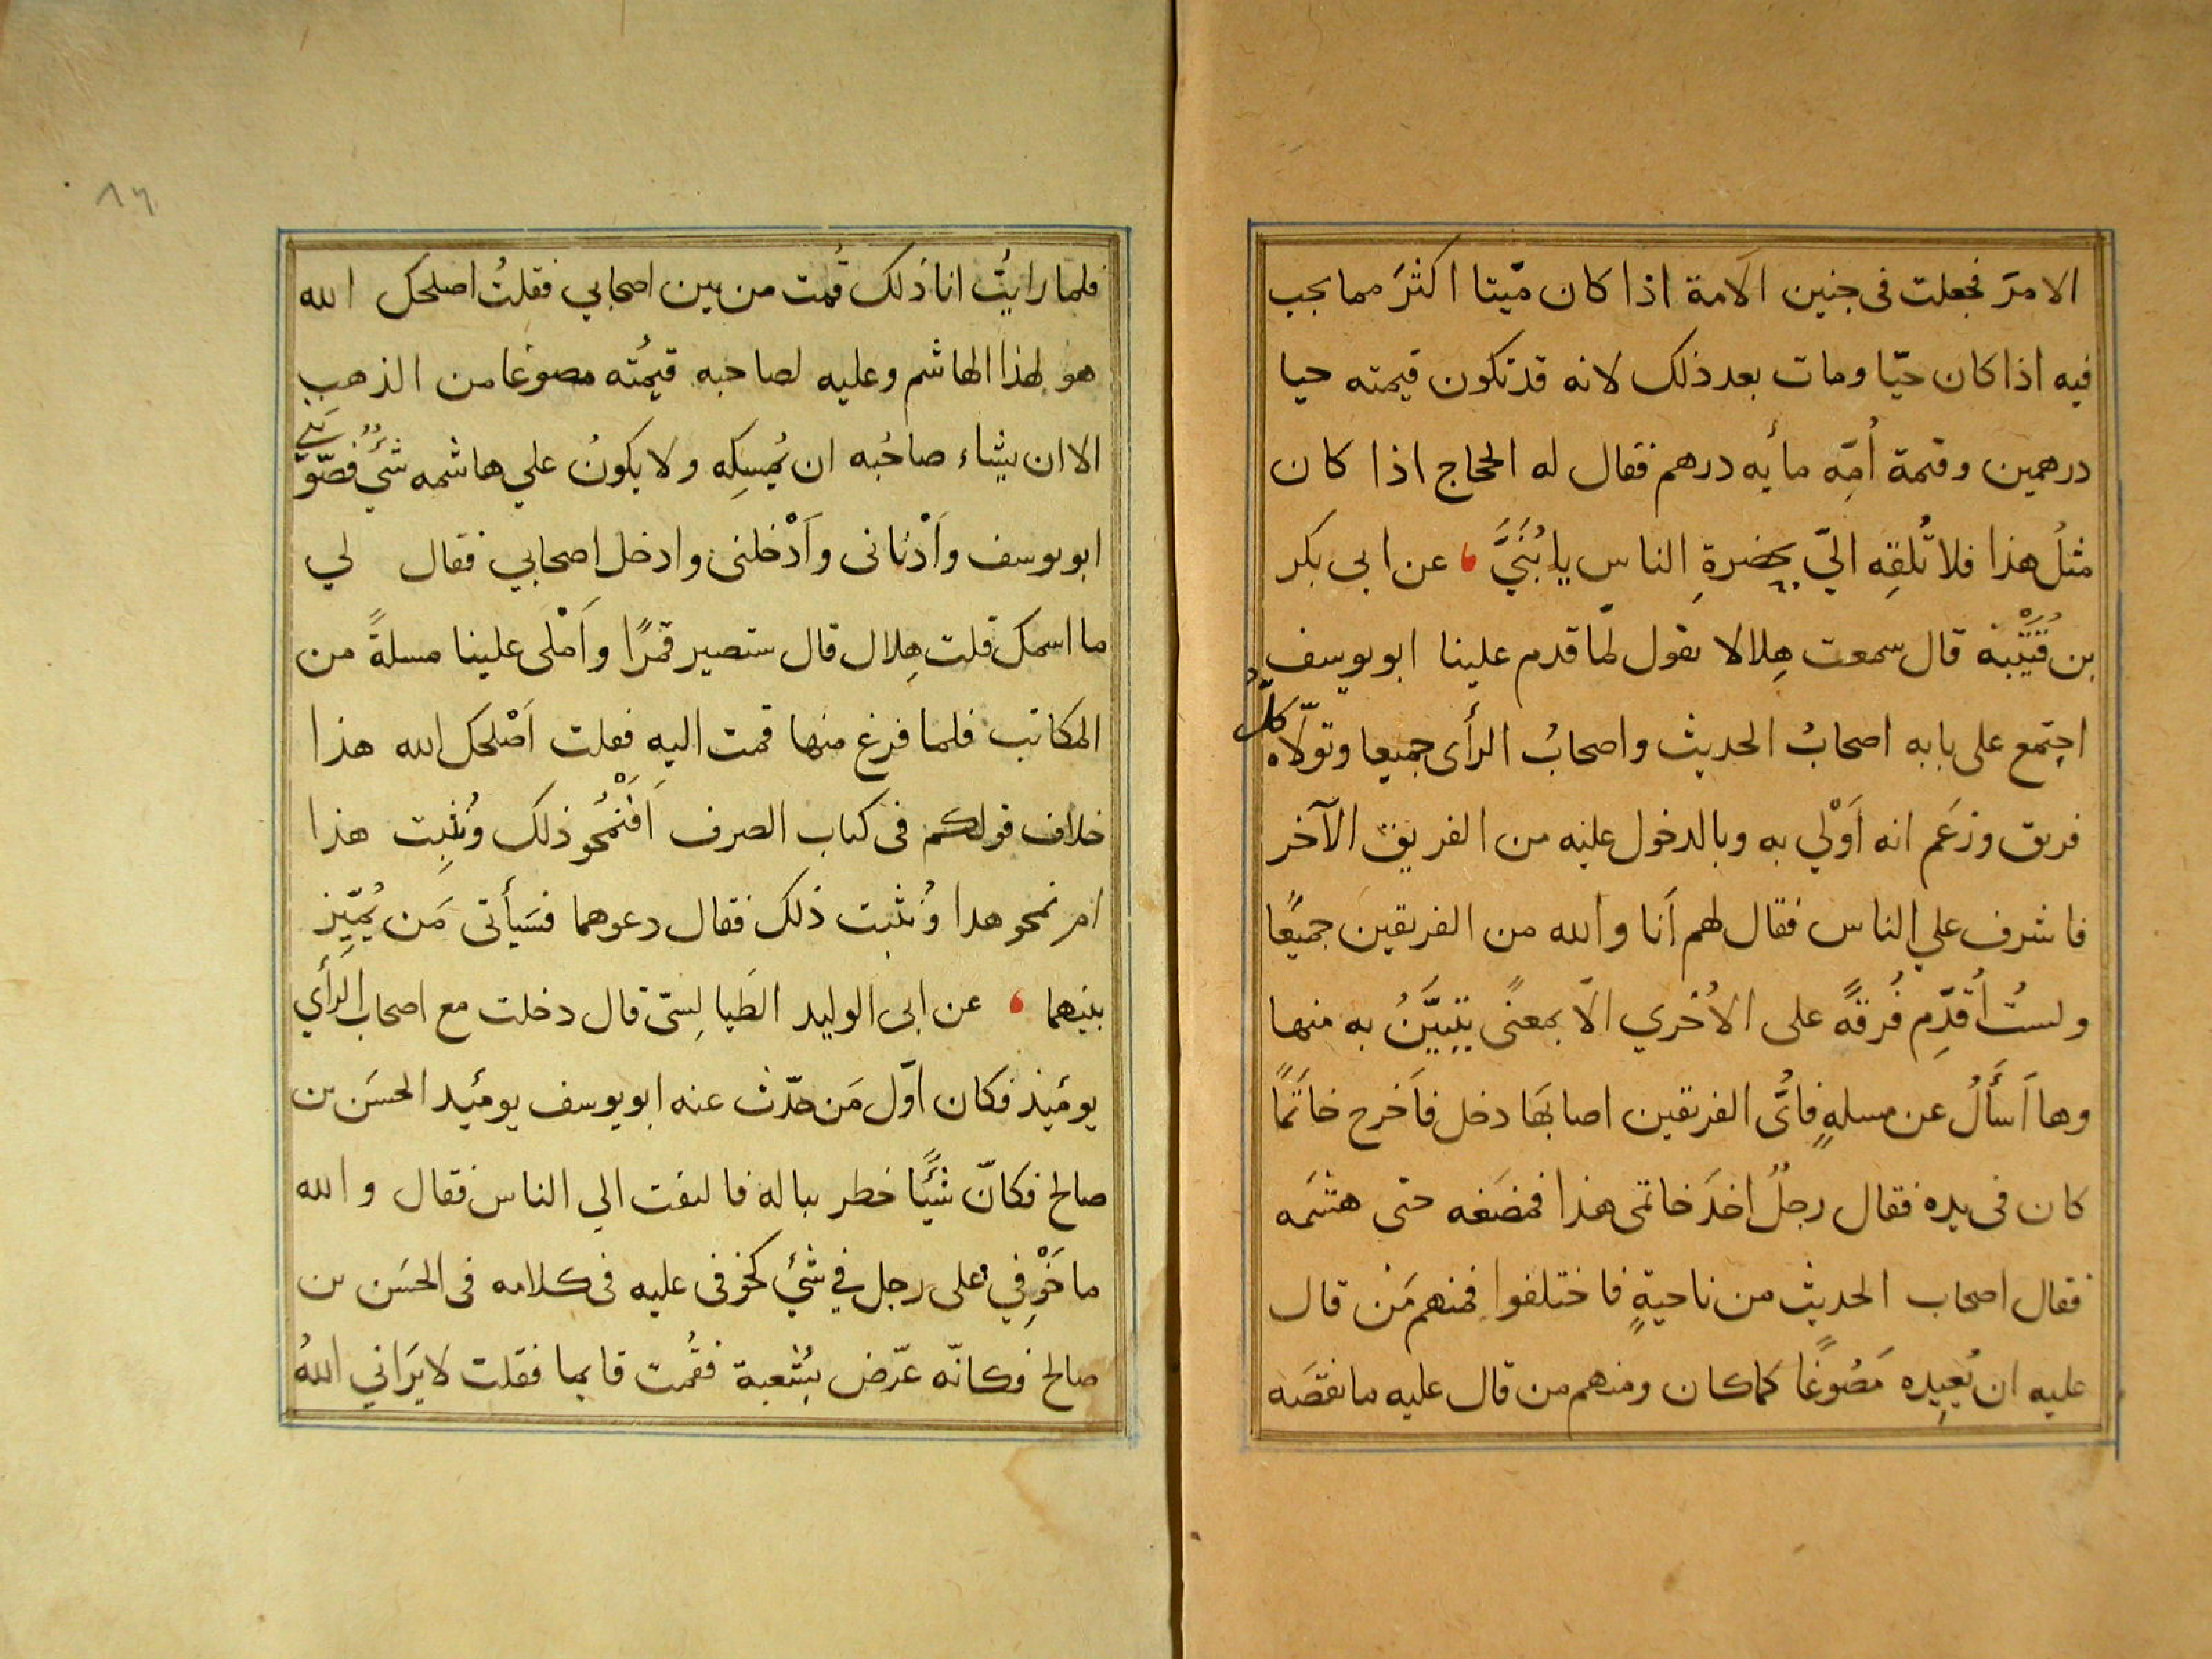 الامرَ فجعلت فى جنين الامة اذا كان ميّتا اكثرَ مما يجب
فيه اذا كان حيّا ومات بعد ذلك لانه قد تكون قيمته حيا
درهمين وقيمة اُمّه مأيه درهم فقال له الحجاج اذا كان
مثلُ هذا فلا تُلقِه اليّ بحضرةِ الناس يا بُنَيَّ ، عن ابى بكر
بن قُتَيْبَة قال سمعت هِلالا يقول لمّا قدم علينا ابو يوسف
اجتمع على بابه اصحابُ الحديث واصحابُ الرأى جميعا وتولّاه كلُّ
فريق وزعَم انه اَوْلي به وبالدخول عليه من الفريق الآخر
فاشرف علي الناس فقال لهم اَنا والله من الفريقين جميعًا
ولستُ اُقدِّم فُرقةً على الاُخري الّا بمعنًى يتبيَّنُ به منها
وها اَسأَلُ عن مسلهٍ فاىُّ الفريقين اصابَها دخل فاَخرج خاتَمًا
كان فى يده فقال رجلٌ اخذَ خاتمى هذا فمضَغه حتى هشَمه
فقال اصحاب الحديث من ناحيةٍ فاختلفوا فمنهم مَن قال
عليه ان يُعيِده مَصُوغًا كما كان ومنهم من قال عليه ما نقصَه
١٦
فلما رايتُ انا ذلك قُمت من بين اصحابي فقلتُ اصلحك الله
هو لهذا الهاشم وعليه لصاحبه قيمُته مصوغا من الذهب
الا ان يشاء صاحُبه ان يُمسِكه ولا يكونُ علي هاشمه شيٌ فصّوَبَني
ابو يوسف واَدْنانى واَدْخلنى وادخل اصحابي فقال لي
ما اسمك قلت هِلال قال ستصير قمرًا واَمْلى علينا مسلةً من
المكاتب فلما فرغ منها قمت اليه فقلت اَصْلحك الله هذا
خلاف قولكم فى كتاب الصرف اَفَنْمُحو ذلك ونُثبِت هذا
ام نمحو هذا ونُثبت ذلك فقال دعوهما فسَيأتى مَن يُميِّز
بينهما ، عن ابى الوليد الطَيالِسىّ قال دخلت مع اصحاب الرأَي
يومئِذ فكان اوّل مَن حدّث عنه ابو يوسف يومئِد الحسَن بن
صالح فكانّ شئًا خطر بباله فالتفت الي الناس فقال والله
ما خَوْفِي على رجل في شئ كخوفى عليه فى كلامه فى الحسَن بن
صالح فكانّه عرّض بُشعبة فقُمت قايما فقلت لا يَرَاني اللهُ